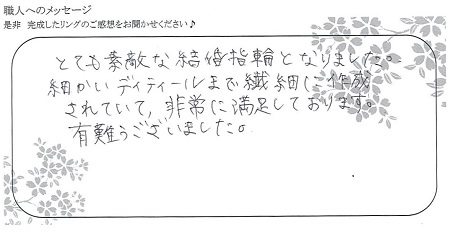 職人へのメッセージ
是非 完成したリングのご感想をお聞かせください♪
とても素敵な結婚指輪となりました。
細かいディティールまで繊細に作成
されていて、非常に満足しております。
有難うございました。